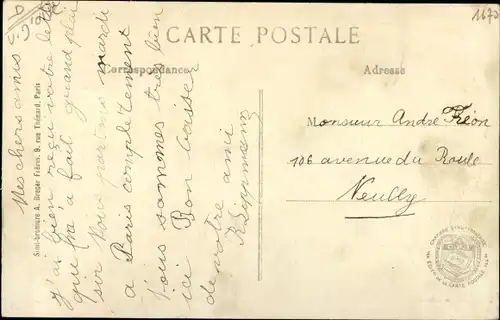 1670
CARTE POSTALE
Correspondance
Adresse
Mes chers amis
J'ai bien reçu votre lettre
que m'a fait grand plaisir
Nous partons mardi
à Paris complètement
Nous sommes très bien
ici Bon baiser
de votre ami
Monsieur André Fréon
106 avenue du Roule
Neuilly
Simi-bromure A. Breger Frères, 9, rue Thénard, Paris